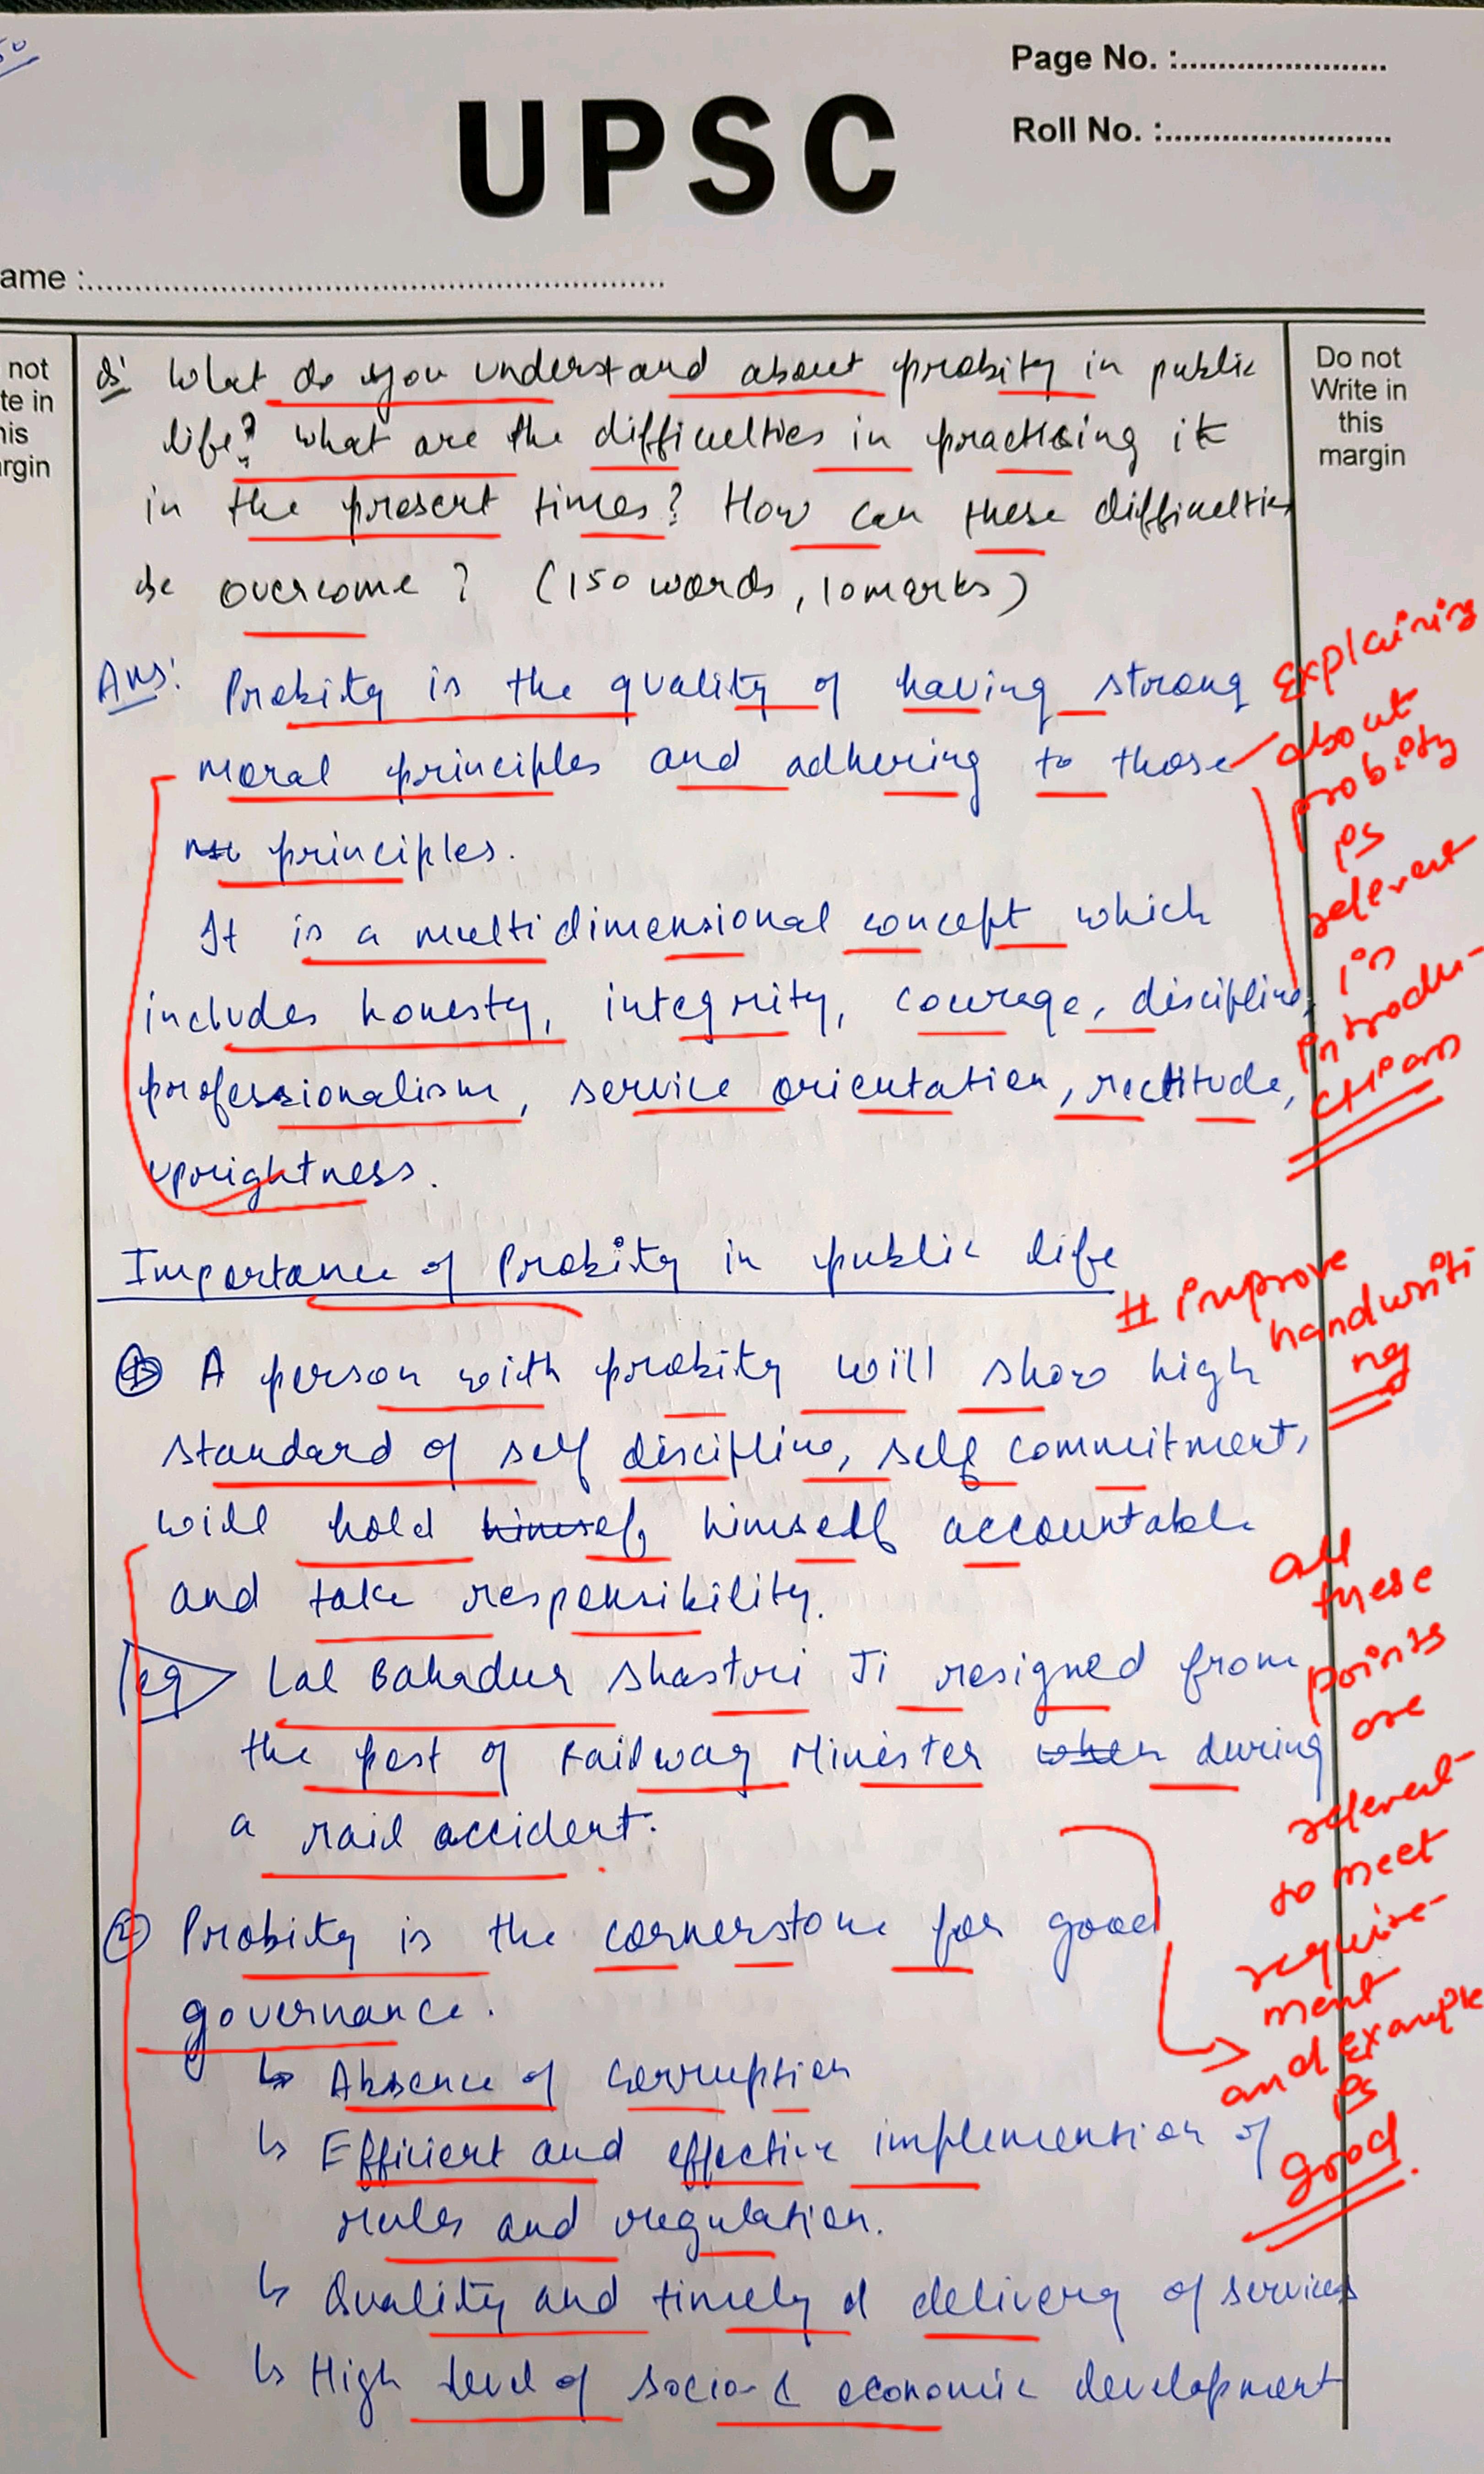 Page No. :......................
UPSC
Roll No. :........................
ame :............................................................
not
te in
his
rgin
Do not
Write in
this
margin
Q: What do you understand about probity in public
life? What are the difficulties in practicing it
in the present times? How can these difficulties
be overcome? (150 words, 10 marks)
Ans: Probity is the quality of having strong
moral principles and adhering to those
principles.
It is a multidimensional concept which
includes honesty, integrity, courage, discipline,
professionalism, service orientation, rectitude,
uprightness.
Explaining
about
probity
is
relevent
in
introdu-
ction
Importance of Probity in public life
# improve
handwriti
ng
① A person with probity will show high
standard of self discipline, self commitment,
will hold himself himself accountable
and take responsibility.
eg Lal Bahadur Shastri Ji resigned from
the post of Railway Minister when during
a rail accident.
② Probity is the cornerstone for good
governance.
↳ Absence of corruption
↳ Efficient and effective implemention of
rules and regulation.
↳ Quality and timely d delivery of services
↳ High level of socio & economic development
all
these
points
are
relevent
to meet
require-
ment
and example
is
good